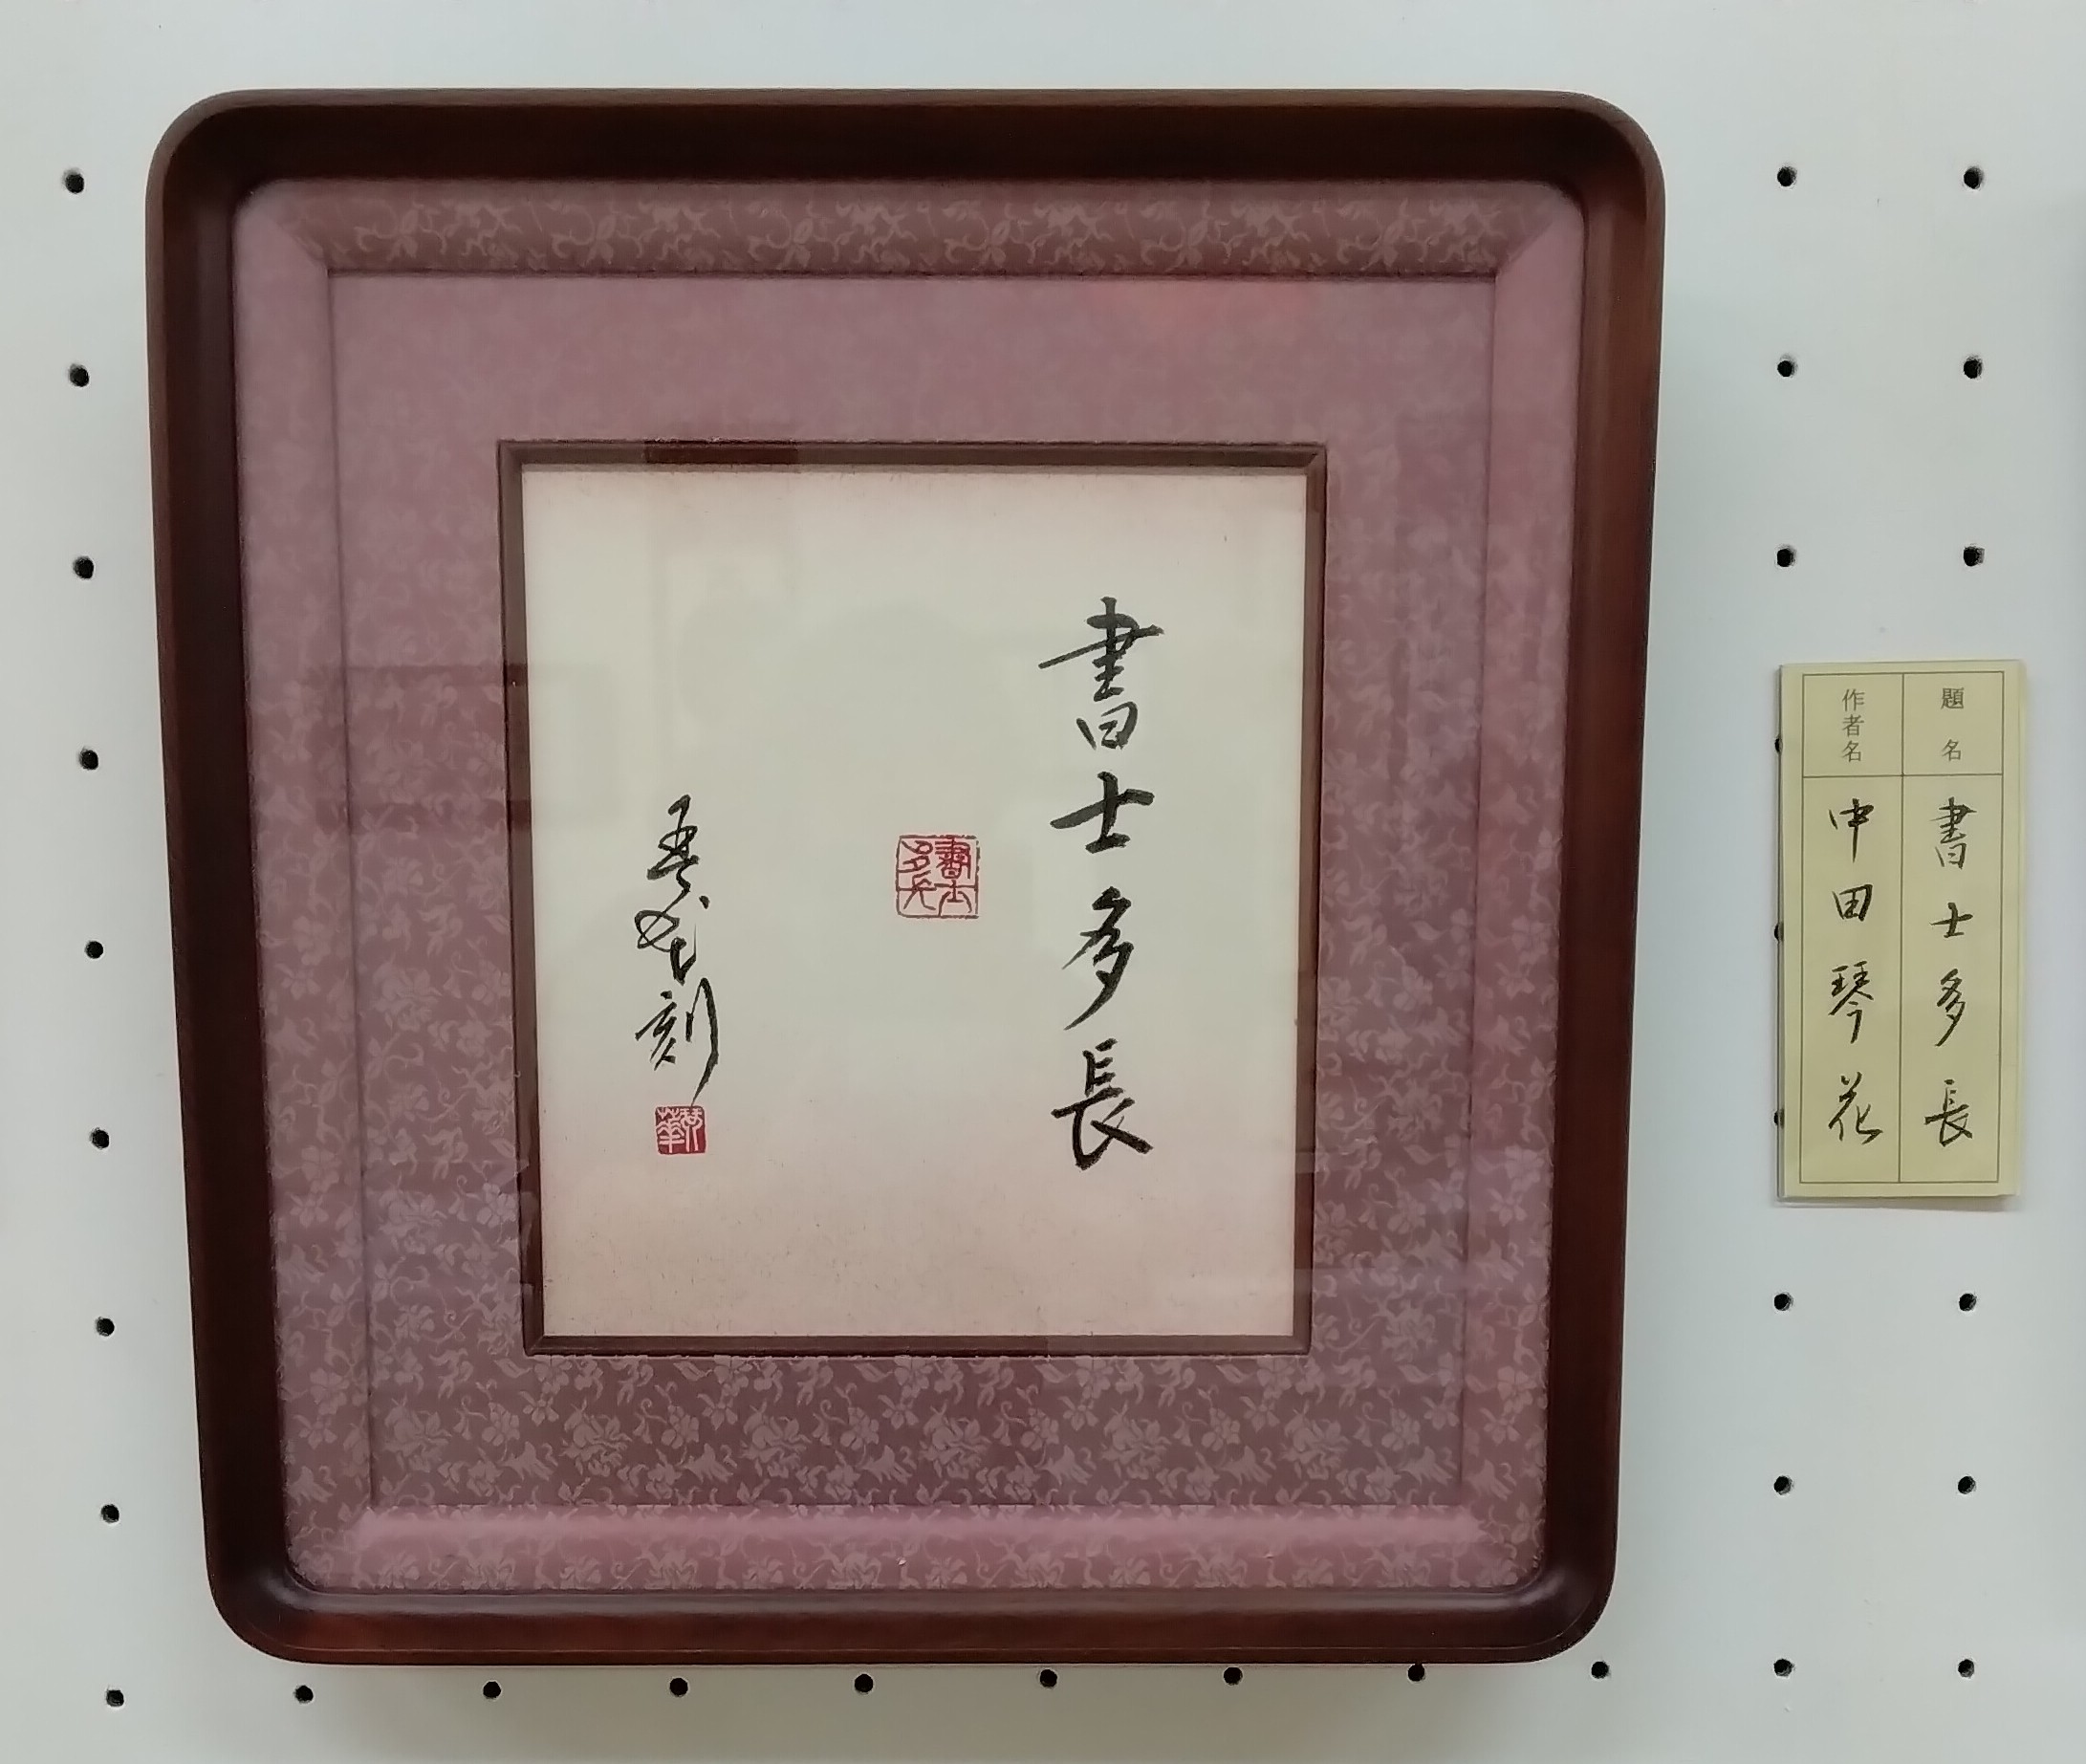 書士多長
書士多長
琴花刻
琴華
題名
書士多長
作者名
中田琴花